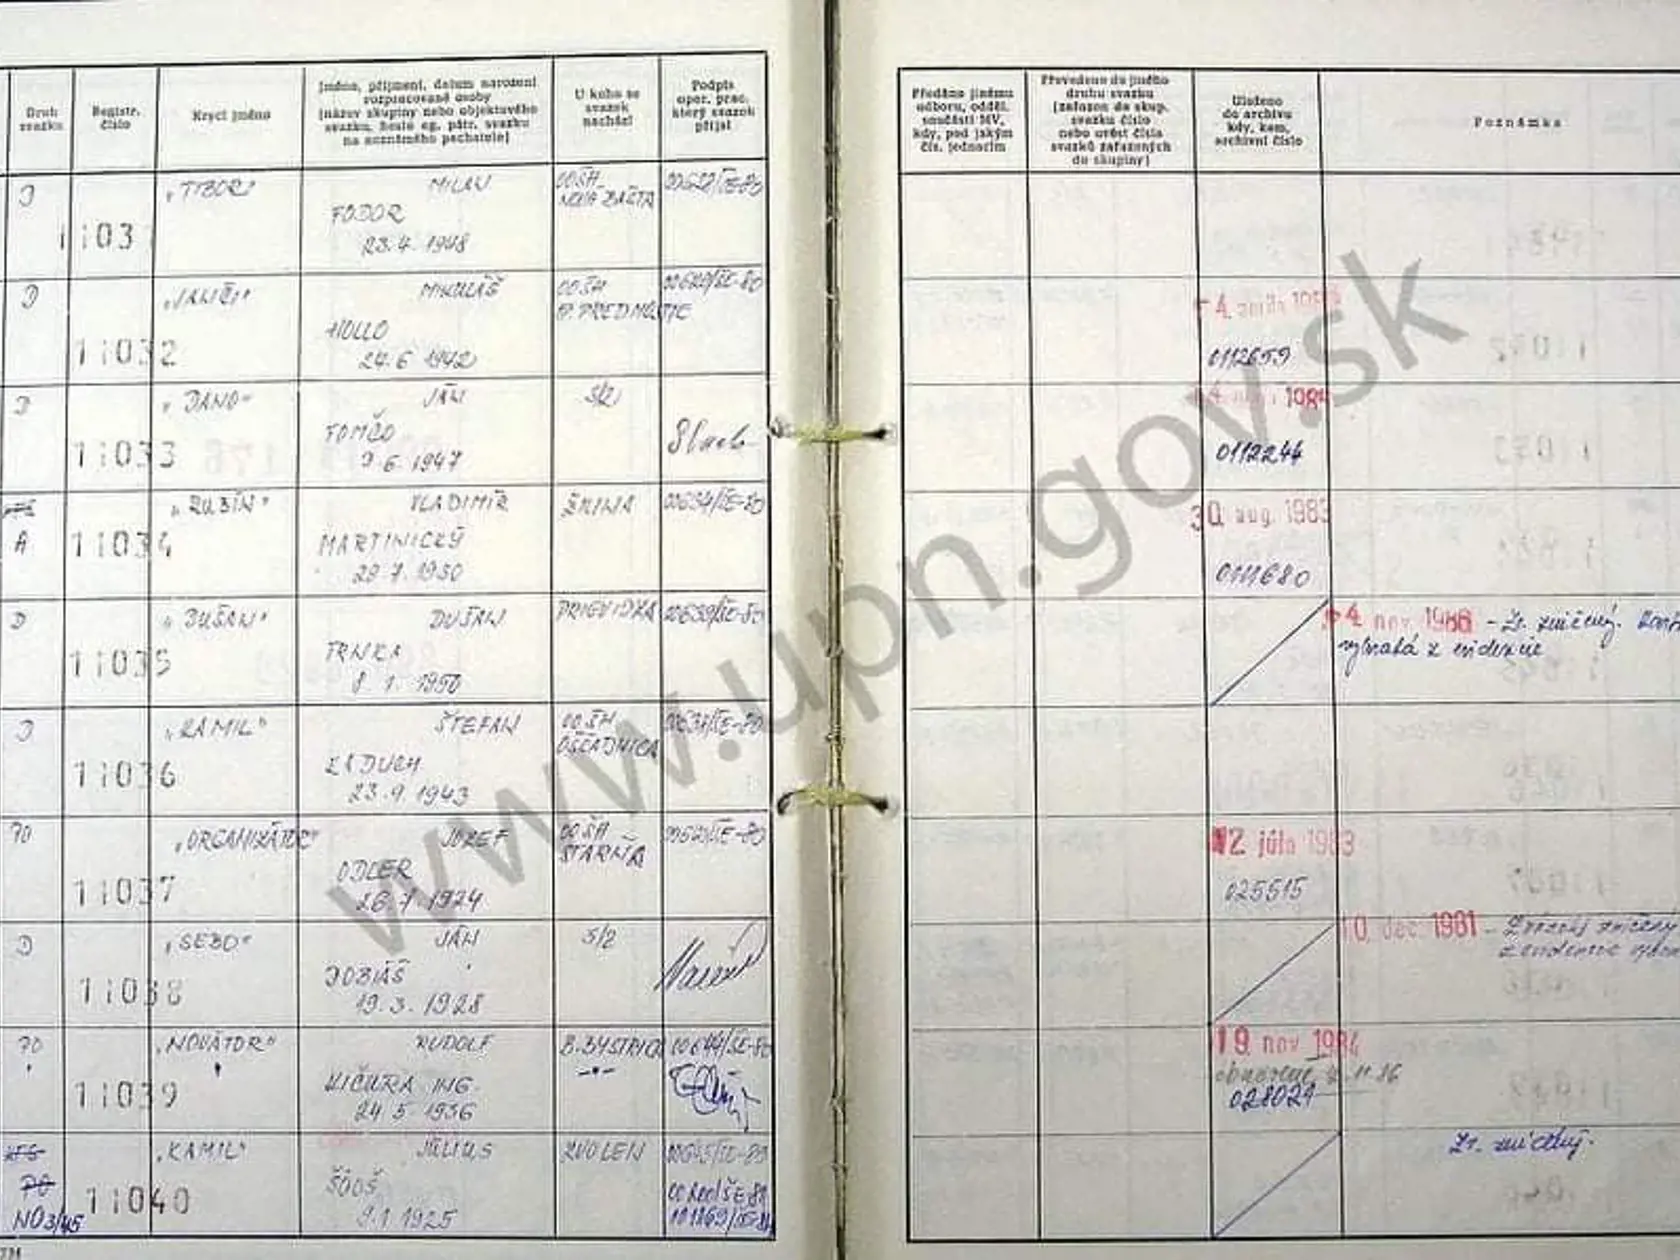 Druh svazku
Registr. číslo
Krycí jméno
Jméno, příjmení, datum narození
rozpracované osoby
(název skupiny nebo objektového
svazku, heslo eg. pátr. svazku
na neznámého pachatele)
U koho se
svazek
nachází
Podpis
oper. prac.
který svazek
přijal
Předáno jinému
odboru, odděl.
součásti MV,
kdy, pod jakým
čís. jednacím
Převedeno do jiného
druhu svazku
(zařazen do skup.
svazku číslo
nebo uvést čísla
svazků zařazených
do skupiny)
Uloženo
do archivu
kdy, kam,
archivní číslo
Poznámka
D
1103
„TIBOR"
MILAN
FODOR
23.4. 1948
OOŠH
00622/ŠE-80
D
11032
MIKULÁŠ
HOLLO
24.6 1942
OOŠH
0112659
D
11033
„DANO"
JÁN
TOMČO
9.6. 1947
S/2
0112244
A
11034
„RUBÍN"
VLADIMÍR
MARTINICKÝ
29.7. 1950
ŽILINA
00634/ŠE-80
30. aug. 1983
0111680
D
11035
„DUŠAN"
DUŠAN
TRNKA
8. 1. 1950
PRIEVIDZA
00639/ŠE-80
4. nov. 1986 - Zv. zničený.
vybratá z evidencie
D
11036
„KAMIL"
ŠTEFAN
KADUCH
23.9. 1943
OOŠH
OŠČADNICA
00637/ŠE-80
PO
11037
„ORGANIZÁTOR"
JOZEF
ODLER
26.7. 1924
OOŠH
STARIŇA
12. júla 1983
025515
D
11038
„SEBO"
JÁN
DOBIÁŠ
19.3. 1928
S/2
10. dec. 1981 - Zväzok zničený
z evidencie
PO
11039
„NOVÁTOR"
RUDOLF
KIČURA ING.
24.5 1936
B.BYSTRICA
00644/ŠE-80
19. nov. 1984
obnovené 4.11.86
028021
PO
NO3/45
11040
„KAMIL"
JÚLIUS
ŠÓOŠ
9.1. 1925
ZVOLEN
00645/ŠE-80
Zv. zničený.
www.upn.gov.sk